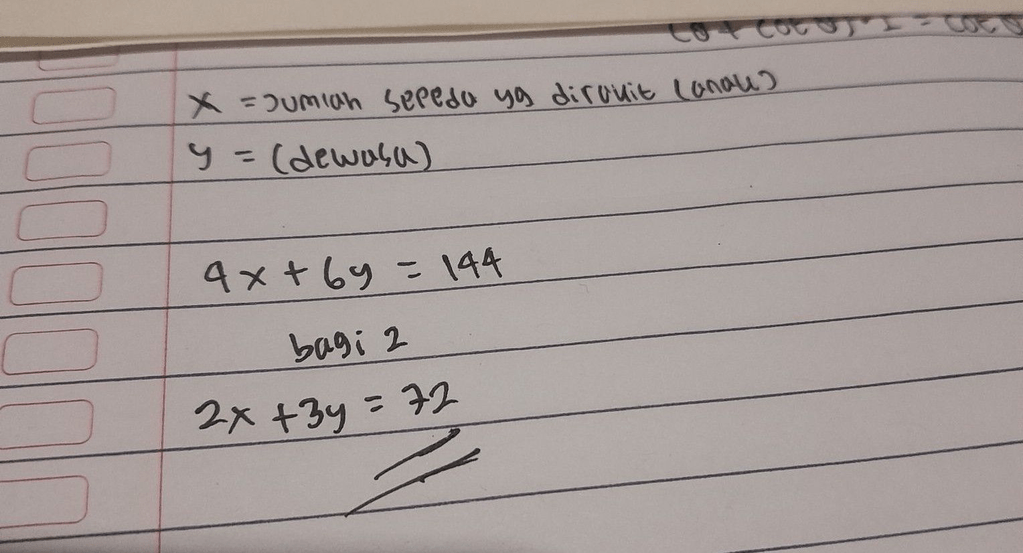 x = Jumlah sepeda yg dirakit (anak)
y = (dewasa)
4x + 6y = 144
bagi 2
2x + 3y = 72